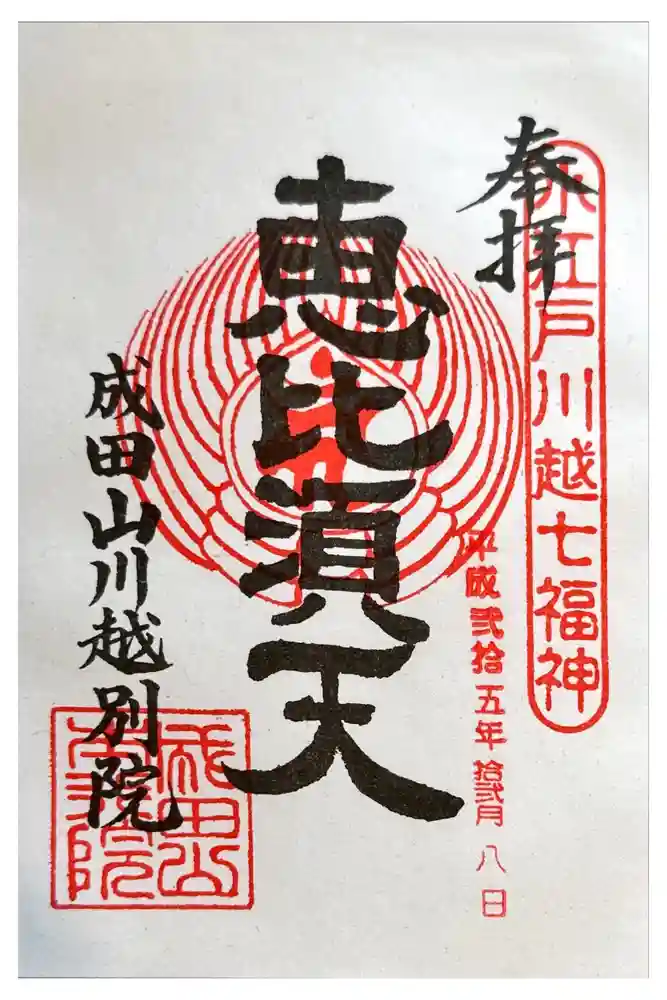 奉拝
小江戸川越七福神
恵比須天
平成弐拾五年拾弐月八日
成田山川越別院
成田山
本行院